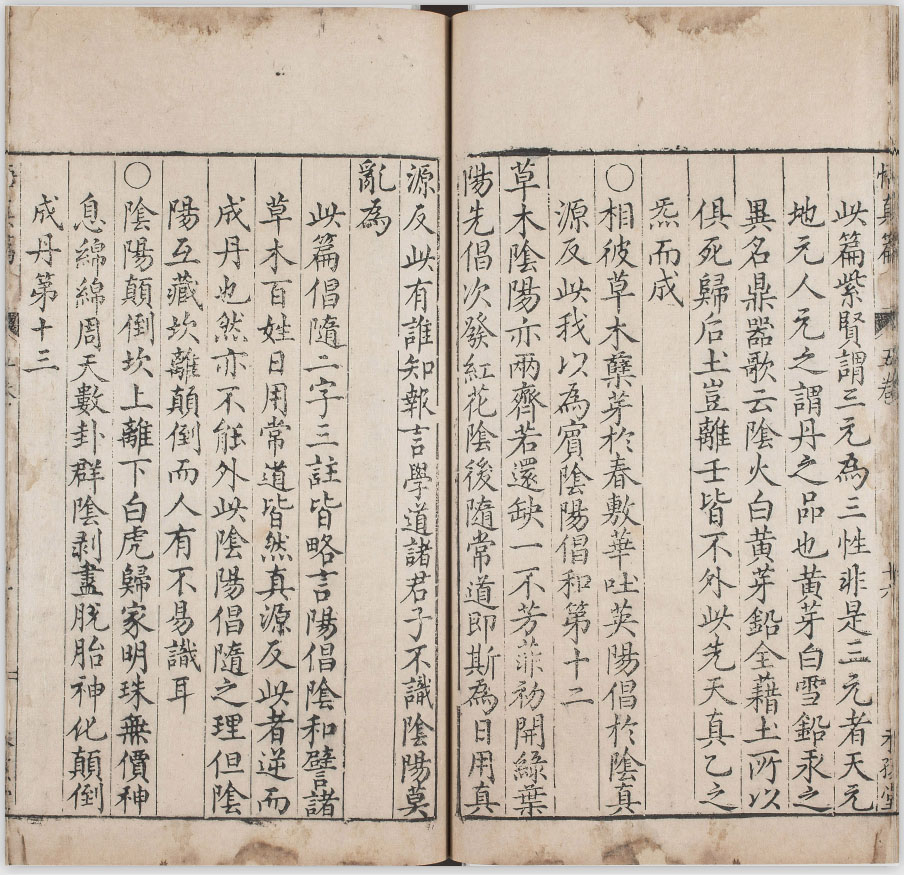 此篇紫賢謂三元為三性非是三元者天元
地元人元之謂丹之品也黃芽白雪鉛汞之
異名鼎器歌云陰火白黃芽鉛全藉土所以
俱死歸后土豈離壬皆不外此先天真乙之
炁而成
○相彼草木孽芽於春敷華吐英陽倡於陰真
源反此我以為賓陰陽倡和第十二
草木陰陽亦兩齊若還缺一不芳菲初開綠葉
陽先倡次發紅花陰後隨常道即斯為日用真
源反此有誰知報言學道諸君子不識陰陽莫
亂為
此篇倡隨二字三註皆略言陽倡陰和譬諸
草木百姓日用常道皆然真源反此者逆而
成丹也然亦不能外此陰陽倡隨之理但陰
陽互藏坎離顛倒而人有不易識耳
○陰陽顛倒坎上離下白虎歸家明珠無價神
息綿綿周天數卦群陰剥盡脫胎神化顛倒
成丹第十三